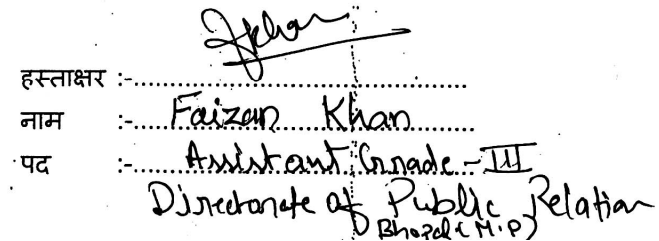 हस्ताक्षर :-
नाम :- Faizan Khan
पद :- Assistant Grade - III
Directorate of Public Relation
Bhopal (M.P)